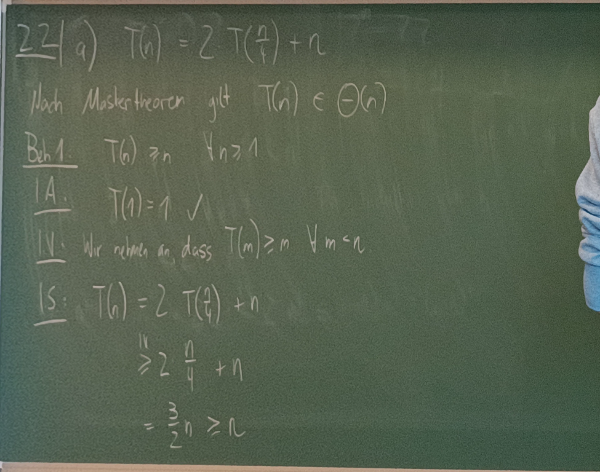 22/ a) T(n) = 2 T(n/4) + n
Nach Mastertheorem gilt T(n) ∈ Θ(n)
Beh 1. T(n) ≥ n ∀ n ≥ 1
IA. T(1) = 1 ✓
IV: Wir nehmen an, dass T(m) ≥ m ∀ m < n
IS: T(n) = 2 T(n/4) + n
IV ≥ 2 n/4 + n
= 3/2 n ≥ n